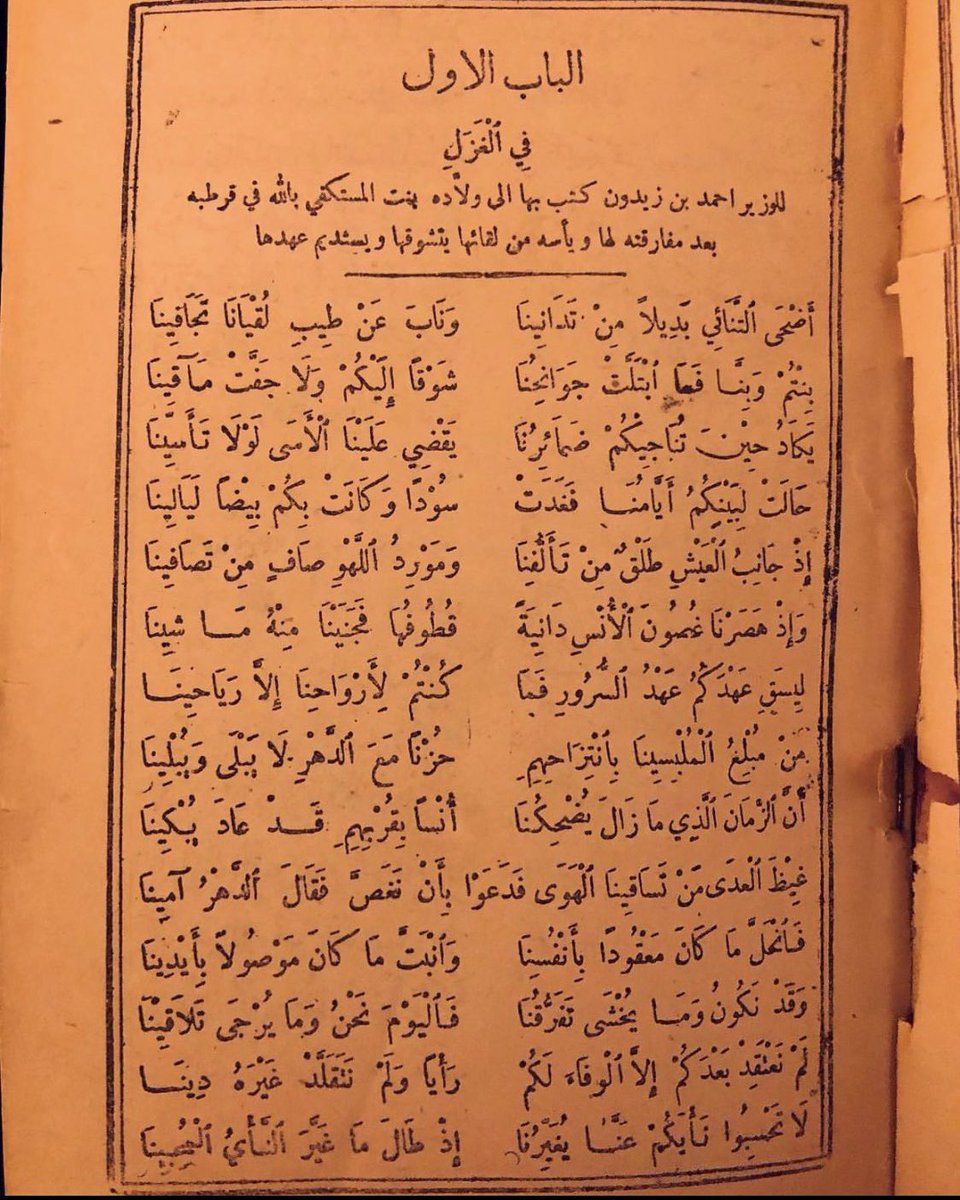 الباب الاول
فِي ٱلْغَزَلِ
للوزير احمد بن زيدون كتب بها الى ولاَّده بنت المستكفي بالله في قرطبه
بعد مفارقته لها ويأسه من لقائها يتشوقها ويستديم عهدها
أَضْحَى ٱلتَّنَائِي بَدِيلاً مِنْ تَدَانِينَا وَنَابَ عَنْ طِيبِ لُقْيَانَا تَجَافِينَا
بِنْتُمْ وَبِنَّا فَمَا ٱبْتَلَّتْ جَوَانِحُنَا شَوْقًا إِلَيْكُمْ وَلَا جَفَّتْ مَآقِينَا
يَكَادُ حِيْنَ تُنَاجِيكُمْ ضَمَائِرُنَا يَقْضِي عَلَيْنَا ٱلْأَسَى لَوْلَا تَأَسِّينَا
حَالَتْ لِبَيْنِكُمُ أَيَّامُنَا فَغَدَتْ سُوْدًا وَكَانَتْ بِكُمْ بِيْضًا لَيَالِينَا
إِذْ جَانِبُ ٱلْعَيْشِ طَلْقٌ مِنْ تَأَلُّفِنَا وَمَوْرِدُ ٱللَّهْوِ صَافٍ مِنْ تَصَافِينَا
وَإِذْ هَصَرْنَا غُصُونَ ٱلْأُنْسِ دَانِيَةً قُطُوفُهَا فَجَنَيْنَا مِنْهُ مَا شِينَا
لِيسْقَ عَهْدَكُمُ عَهْدُ ٱلسُّرُورِ فَمَا كُنْتُمْ لِأَرْوَاحِنَا إِلاَّ رَيَاحِينَا
مَنْ مُبْلِغُ ٱلْمُلْبِسِينَا بِٱنْتِزَاحِهِمِ حُزْنًا مَعَ ٱلدَّهْرِ لَا يَبْلَى وَيُبْلِينَا
أَنَّ ٱلزَّمَانَ ٱلَّذِي مَا زَالَ يُضْحِكُنَا أُنْسًا بِقُرْبِهِمِ قَدْ عَادَ يُبْكِينَا
غِيْظَ ٱلْعِدَى مِنْ تَسَاقِينَا ٱلْهَوَى فَدَعَوْا بِأَنْ نَغَصَّ فَقَالَ ٱلدَّهْرُ آمِينَا
فَٱنْحَلَّ مَا كَانَ مَعْقُودًا بِأَنْفُسِنَا وَٱنْبَتَّ مَا كَانَ مَوْصُولاً بِأَيْدِينَا
وَقَدْ نَكُونُ وَمَا يُخْشَى تَفَرُّقُنَا فَٱلْيَوْمَ نَحْنُ وَمَا يُرْجَى تَلَاقِيْنَا
لَمْ نَعْتَقِدْ بَعْدَكُمْ إِلاَّ ٱلْوَفَاءَ لَكُمْ رَأْيًا وَلَمْ نَتَقَلَّدْ غَيْرَهُ دِينَا
لَا تَحْسِبُوا نَأْيَكُمْ عَنَّا يُغَيِّرُنَا إِذْ طَالَ مَا غَيَّرَ ٱلنَّأْيُ ٱلْمُحِبِينَا